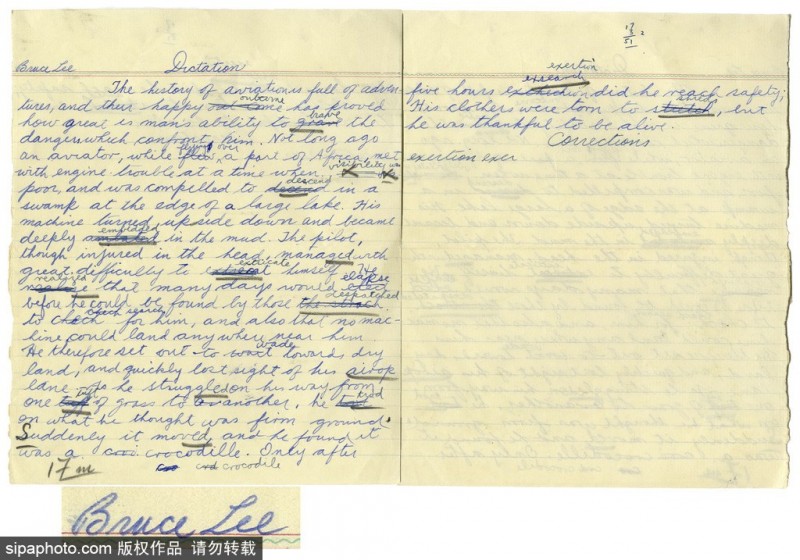 Bruce Lee Dictation
The history of avigtion is full of adven-
tures, and their happy outcome has proved
how great is man's ability to brave the
dangers which confront him. Not long ago
an aviator, while flying over a part of Africa, met
with engine trouble at a time when visibility was
poor, and was compelled to descend in a
swamp at the edge of a large lake. His
machine turned upside down and became
deeply embedded in the mud. The pilot,
though injured in the head, managed with
great difficulty to extricate himself. He
realized that many days would elapse
before he could be found by those despatched
to search for him, and also that no mac-
hine could land any where near him
He therefore set out to wade towards dry
land, and quickly lost sight of his airop
lane. As he struggled on his way from
one tuft of grass to another, he trod
on what he thought was firm ground.
Suddenly it moved, and he found it
was a crocodille. Only after
17 m crocodile
exertion
five hours did he reach safety;
His clothers were torn to shred, but
he was thankful to be alive.
Corrections
exertion exer
Bruce Lee
sipaphoto.com 版权作品 请勿转载